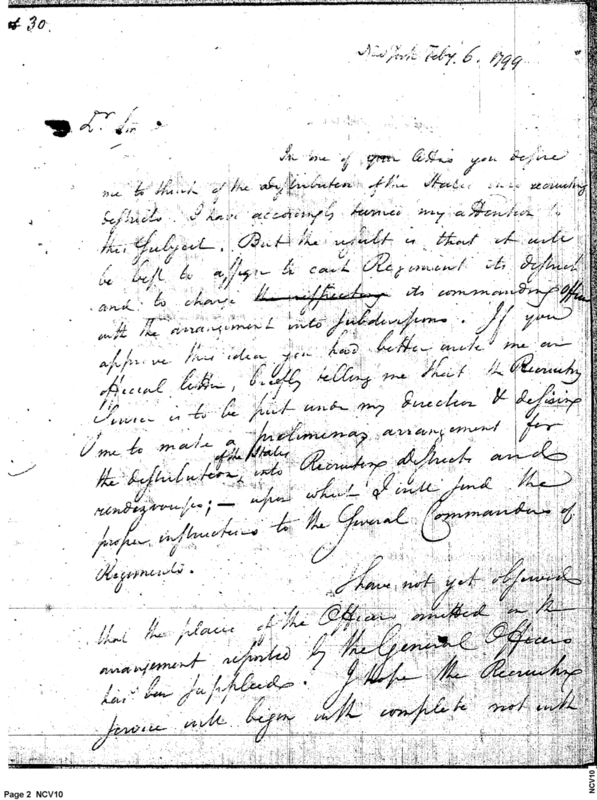 # 30.
New York Feby. 6. 1799
Dr. Sir
In one of your letters you desire
me to think of the distribution of the States into recruiting
districts. I have accordingly turned my attention to
this subject. But the result is that it will
be best to assign to each Regiment its district
and to charge its commanding Officer
with the arrangement into subdivisions. If you
approve this idea you had better write me an
official letter, briefly telling me that the Recruiting
Service is to be put under my direction & desiring
me to make a preliminary arrangement for
the distribution of the States into Recruiting districts and
rendezvouses; — upon which I will send the
proper instructions to the several Commanders of
Regiments.
I have not yet observed
that the places of the Officers omitted in the
arrangement reported by the General Officers
has been supplied. I hope the Recruiting
service will begin with complete not with
Page 2 NCV10
NCV10